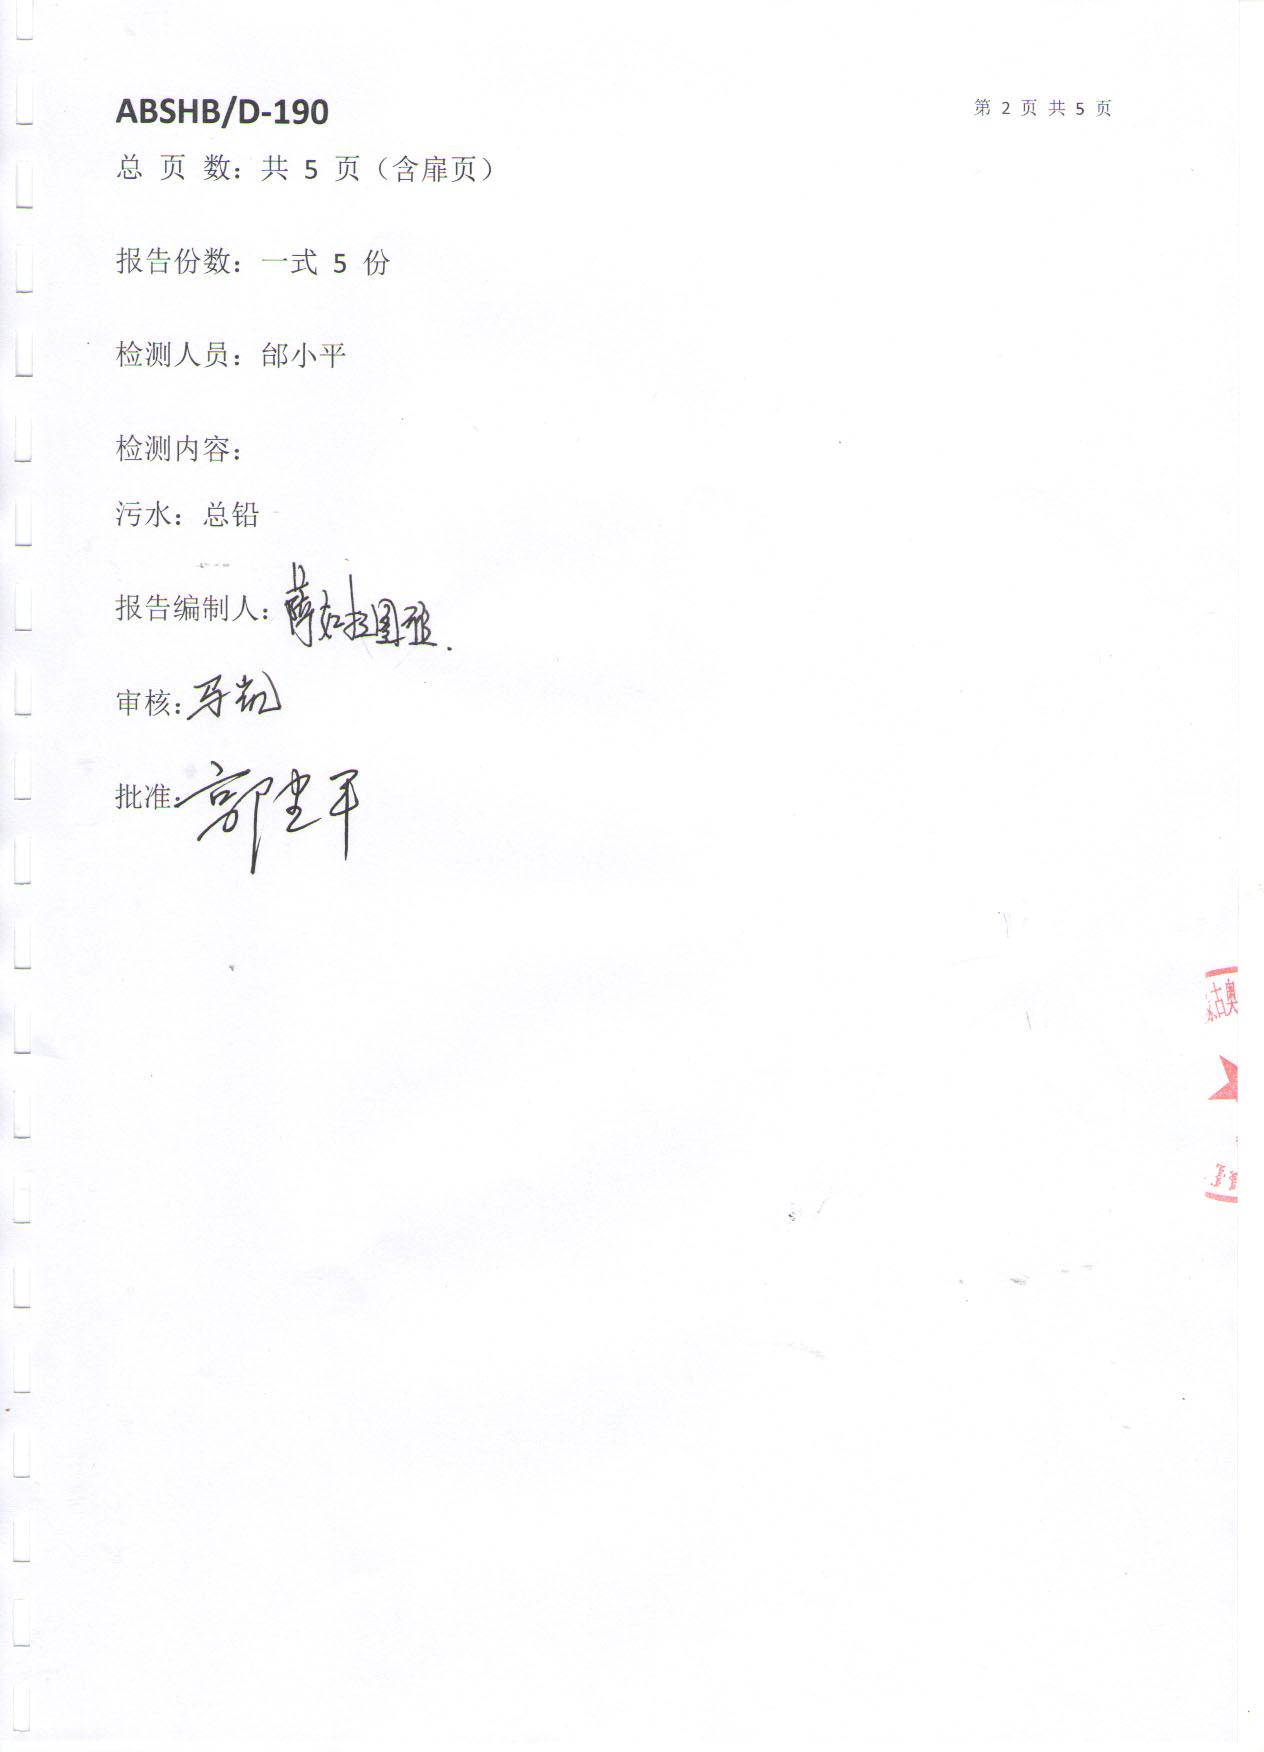 ABSHB/D-190
第 2 页 共 5 页
总 页 数：共 5 页（含扉页）
报告份数：一式 5 份
检测人员：邰小平
检测内容：
污水：总铅
报告编制人：萨如拉图雅.
审核：马凯
批准：郭建军
古奥